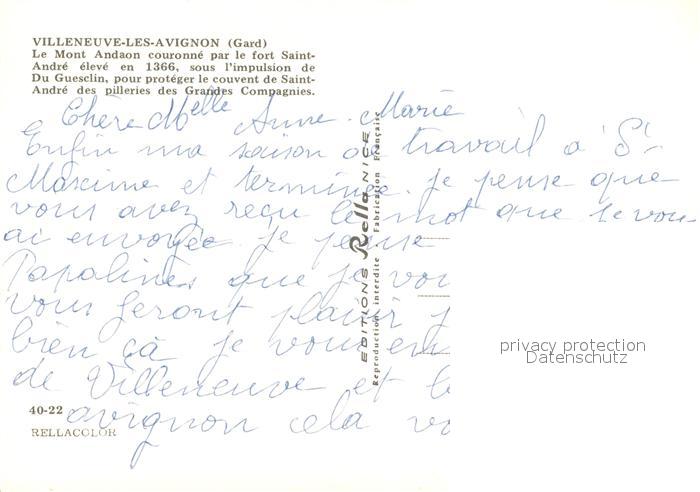 VILLENEUVE-LES-AVIGNON (Gard)
Le Mont Andaon couronné par le fort Saint-
André élevé en 1366, sous l'impulsion de
Du Guesclin, pour protéger le couvent de Saint-
André des pilleries des Grandes Compagnies.
Chère Melle Anne-Marie
Enfin ma saison de travail a St-
Maxime et terminée. je pense que
vous avez reçu le mot que je vou
ai envoyée je pense
Papalines que je vou
vous feront plaisir j
bien ça je vous en
de Villeneuve et l
avignon cela vo
EDITIONS Rella NICE
Reproduction interdite Fabrication Française
40-22
RELLACOLOR
privacy protection
Datenschutz